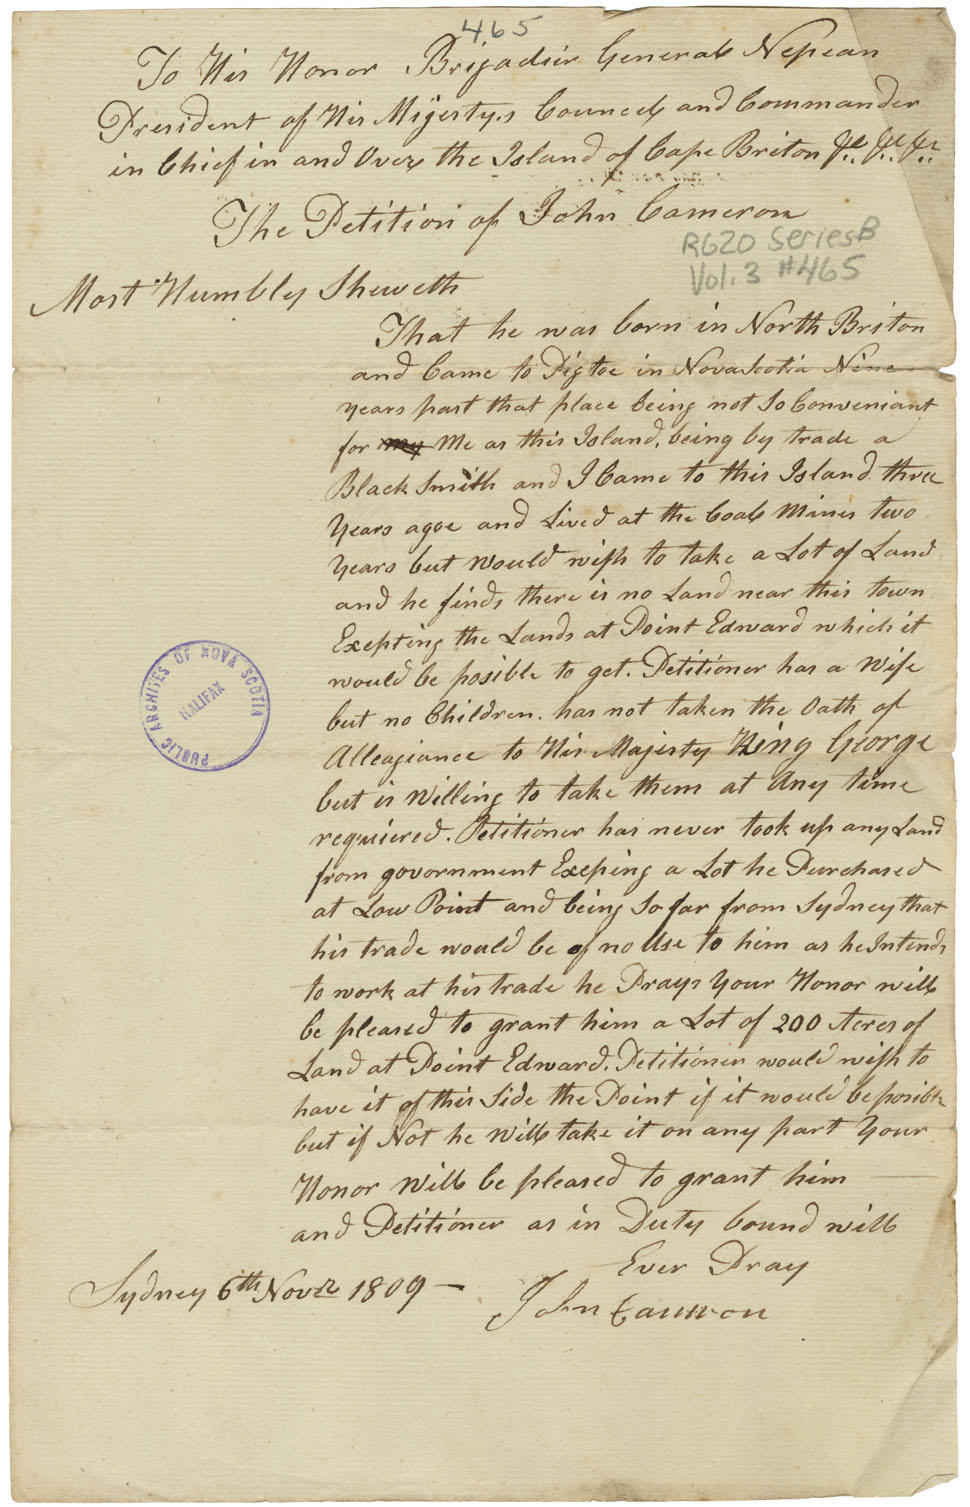 465
To His Honor Brigadier General Nepean
President of His Mijesty,s Councel and Commander
in Chief in and Over the Island of Cape Briton &c &c &c
The Petition of John Cameron
RG20 Series B
Vol. 3 #465
Most Humbly Sheweth
That he was born in North Briton
and Came to Pigtoe in Nova Scotia Nine
years past that place being not So Conveniant
for my Me as this Island, being by trade a
Black Smith and I Came to this Island three
Years agoe and Lived at the Coal Mines two
Years but would wish to take a Lot of Land
and he finds there is no Land near this town
Exepting the Lands at Point Edward which it
would be posible to get. Petitioner has a Wife
but no Children. has not taken the Oath of
Alleagiance to His Majesty King George
but is Willing to take them at Any time
requiered. Petitioner has never took up any Land
from govornment Exeping a Lot he Purchased
at Low Point and being So far from Sydney that
his trade would be of no Use to him as he Intends
to work at his trade he Prays Your Honor will
be pleased to grant him a Lot of 200 Acres of
Land at Point Edward. Petitioner would wish to
have it of this Side the Point if it would be posible
but if Not he Will take it on any part Your
Honor Will be pleased to grant him
and Petitioner as in Duty bound will
Ever Pray
Sydney 6th Novr 1809 —
John Cameron
PUBLIC ARCHIVES OF NOVA SCOTIA
HALIFAX